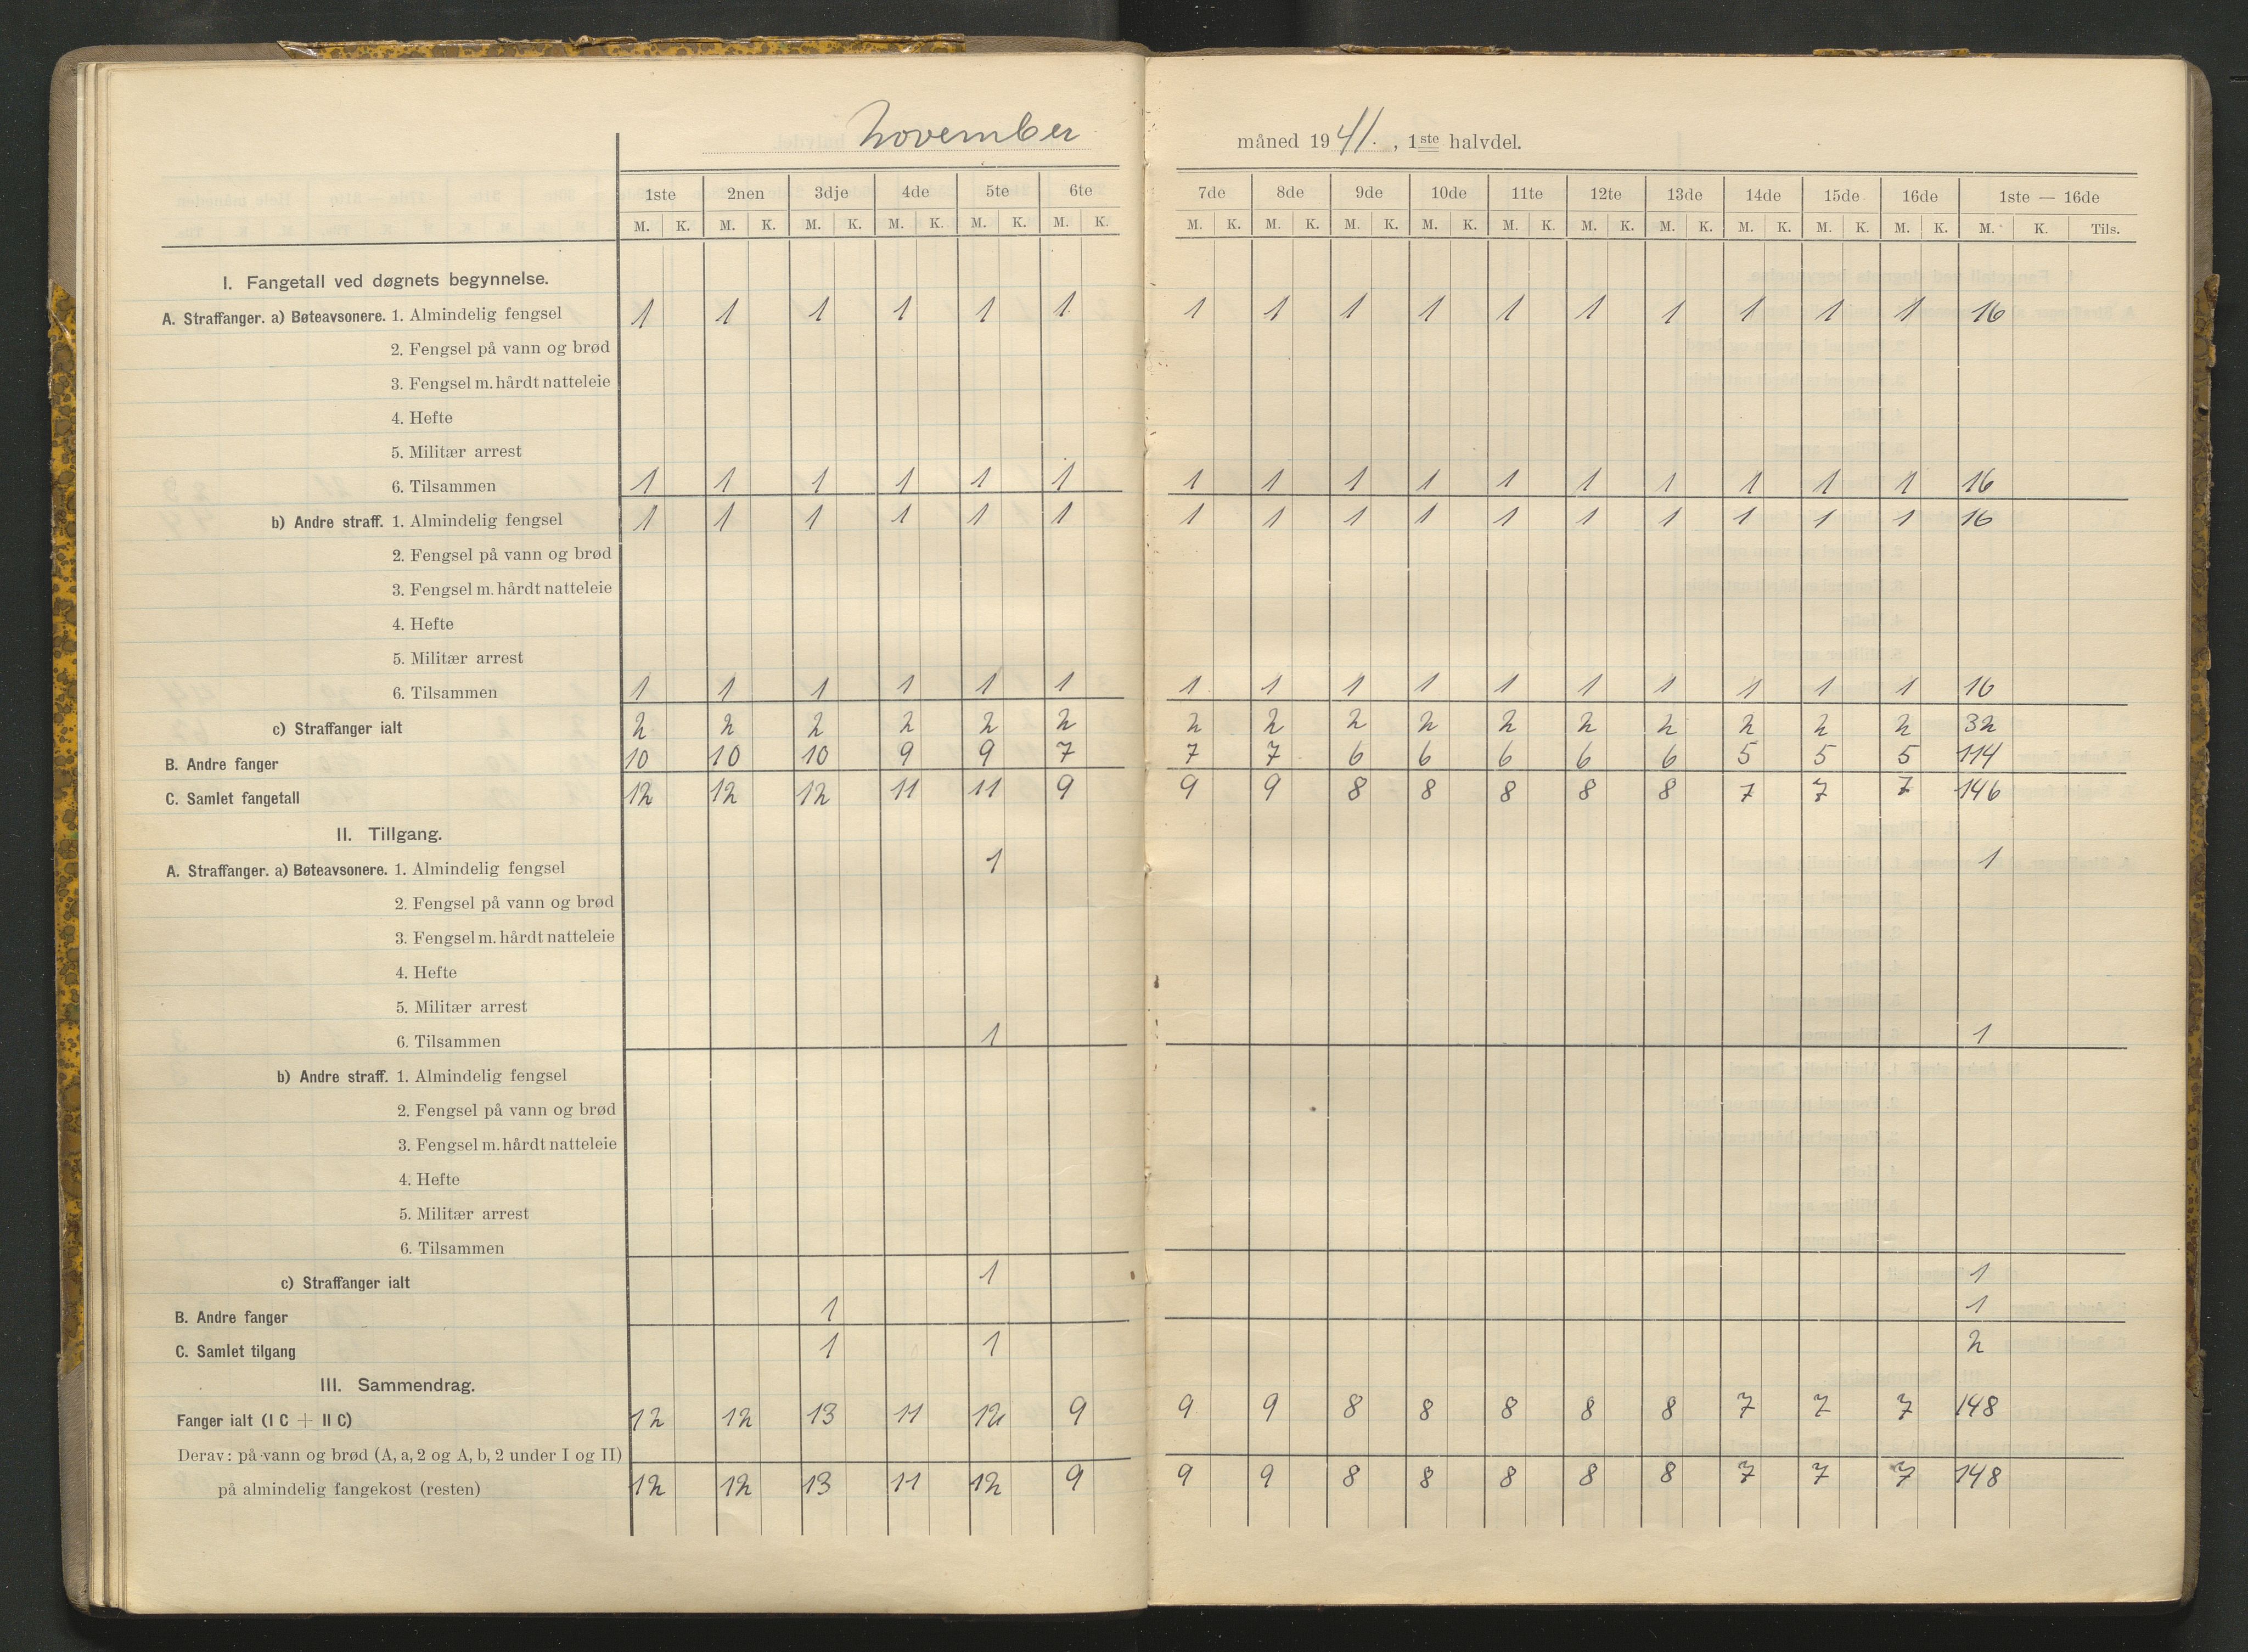 november måned 1941., 1ste halvdel.
1ste 2nen 3dje 4de 5te 6te 7de 8de 9de 10de 11te 12te 13de 14de 15de 16de 1ste — 16de
M. K. M. K. M. K. M. K. M. K. M. K. M. K. M. K. M. K. M. K. M. K. M. K. M. K. M. K. M. K. M. K. M. K. Tils.
I. Fangetall ved døgnets begynnelse.
A. Straffanger. a) Bøteavsonere. 1. Almindelig fengsel 1 1 1 1 1 1 1 1 1 1 1 1 1 1 1 1 16
2. Fengsel på vann og brød
3. Fengsel m. hårdt natteleie
4. Hefte
5. Militær arrest
6. Tilsammen 1 1 1 1 1 1 1 1 1 1 1 1 1 1 1 1 16
b) Andre straff. 1. Almindelig fengsel 1 1 1 1 1 1 1 1 1 1 1 1 1 1 1 1 16
2. Fengsel på vann og brød
3. Fengsel m. hårdt natteleie
4. Hefte
5. Militær arrest
6. Tilsammen 1 1 1 1 1 1 1 1 1 1 1 1 1 1 1 1 16
c) Straffanger ialt 2 2 2 2 2 2 2 2 2 2 2 2 2 2 2 2 32
B. Andre fanger 10 10 10 9 9 7 7 7 6 6 6 6 6 5 5 5 114
C. Samlet fangetall 12 12 12 11 11 9 9 9 8 8 8 8 8 7 7 7 146
II. Tillgang.
A. Straffanger. a) Bøteavsonere. 1. Almindelig fengsel 1 1
2. Fengsel på vann og brød
3. Fengsel m. hårdt natteleie
4. Hefte
5. Militær arrest
6. Tilsammen 1 1
b) Andre straff. 1. Almindelig fengsel
2. Fengsel på vann og brød
3. Fengsel m. hårdt natteleie
4. Hefte
5. Militær arrest
6. Tilsammen
c) Straffanger ialt 1 1
B. Andre fanger 1 1
C. Samlet tilgang 1 1 2
III. Sammendrag.
Fanger ialt (I C + II C) 12 12 13 11 12 9 9 9 8 8 8 8 8 7 7 7 148
Derav: på vann og brød (A, a, 2 og A, b, 2 under I og II)
på almindelig fangekost (resten) 12 12 13 11 12 9 9 9 8 8 8 8 8 7 7 7 148